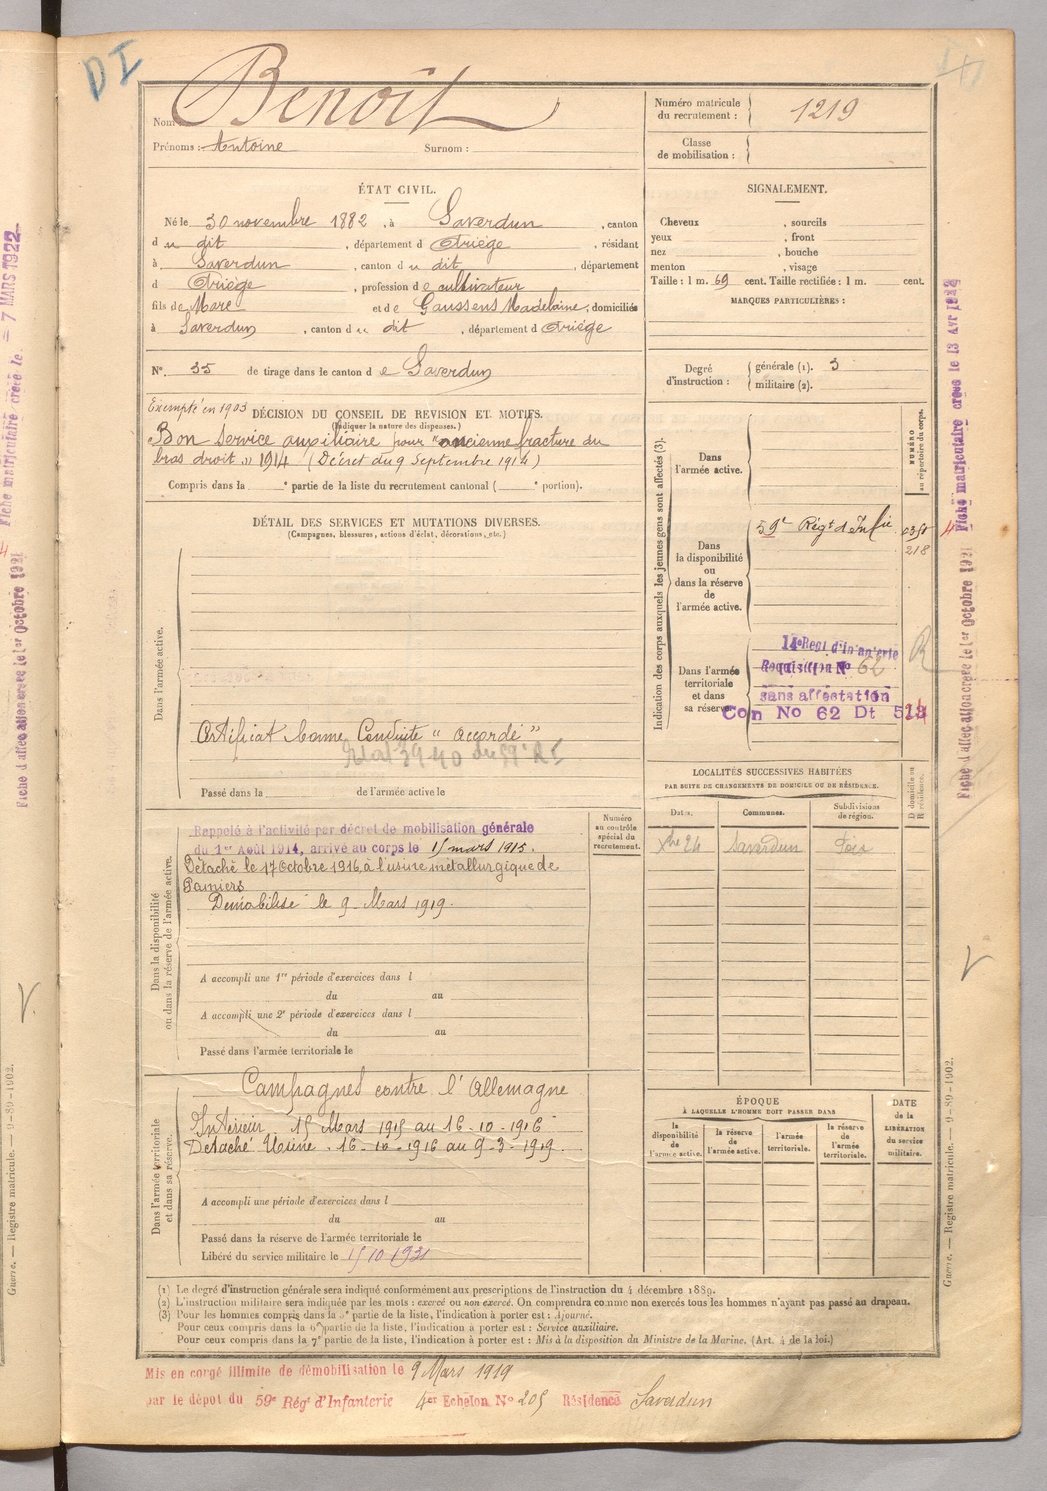 DI
Nom : Benoit
Prénoms : Antoine Surnom :
Numéro matricule du recrutement : 1219
Classe de mobilisation :
ÉTAT CIVIL.
Né le 30 novembre 1882, à Saverdun, canton
du dit, département d Ariège, résidant
à Saverdun, canton du dit, département
d Ariège, profession de cultivateur
fils de Marc et de Gaussens Madelaine, domiciliés
à Saverdun, canton du dit, département d Ariège
N° 35 de tirage dans le canton de Saverdun
SIGNALEMENT.
Cheveux , sourcils
yeux , front
nez , bouche
menton , visage
Taille : 1 m. 69 cent. Taille rectifiée : 1 m. cent.
MARQUES PARTICULIÈRES :
Degré d'instruction : générale (1). 3
militaire (2).
Exempté en 1903
DÉCISION DU CONSEIL DE REVISION ET MOTIFS.
(Indiquer la nature des dispenses.)
Bon Service auxiliaire pour "ancienne fracture du
bras droit" 1914 (Décret du 9 Septembre 1914)
Compris dans la e partie de la liste du recrutement cantonal ( e portion).
DÉTAIL DES SERVICES ET MUTATIONS DIVERSES.
(Campagnes, blessures, actions d'éclat, décorations, etc.)
Dans l'armée active.
Certificat bonne Conduite "accordé"
Passé dans la de l'armée active le
Indication des corps auxquels les jeunes gens sont affectés (3).
NUMÉRO au répertoire du corps.
Dans l'armée active.
Dans la disponibilité ou dans la réserve de l'armée active.
59e Régt d'Infie
218
Dans l'armée territoriale et dans sa réserve.
14e Regt d'Infanterie
Requisition No 62
sans affectation
Con No 62 Dt
R
LOCALITÉS SUCCESSIVES HABITÉES
PAR SUITE DE CHANGEMENTS DE DOMICILE OU DE RÉSIDENCE.
Dates. Communes. Subdivisions de région. D domicile ou R résidence.
Xbre 24 Saverdun Foix
Dans la disponibilité ou dans la réserve de l'armée active.
Numéro au contrôle spécial du recrutement.
Rappelé à l'activité par décret de mobilisation générale
du 1er Août 1914, arrivé au corps le 15 mars 1915.
Détaché le 17 Octobre 1916, à l'usine métallurgique de
Pamiers
Démobilisé le 9 Mars 1919.
A accompli une 1re période d'exercices dans l
du au
A accompli une 2e période d'exercices dans l
du au
Passé dans l'armée territoriale le
Dans l'armée territoriale et dans sa réserve.
Campagnes contre l'Allemagne
Intérieur 15 Mars 1915 au 16-10-1916
Détaché Usine. 16-10-1916 au 9-3-1919.
A accompli une période d'exercices dans l
du au
Passé dans la réserve de l'armée territoriale le
Libéré du service militaire le 15 10 1931
ÉPOQUE
À LAQUELLE L'HOMME DOIT PASSER DANS
la disponibilité de l'armée active.
la réserve de l'armée active.
l'armée territoriale.
la réserve de l'armée territoriale.
DATE de la LIBÉRATION du service militaire.
(1) Le degré d'instruction générale sera indiqué conformément aux prescriptions de l'instruction du 4 décembre 1889.
(2) L'instruction militaire sera indiquée par les mots : exercé ou non exercé. On comprendra comme non exercés tous les hommes n'ayant pas passé au drapeau.
(3) Pour les hommes compris dans la partie de la liste, l'indication à porter est : Ajourné.
Pour ceux compris dans la 6e partie de la liste, l'indication à porter est : Service auxiliaire.
Pour ceux compris dans la 7e partie de la liste, l'indication à porter est : Mis à la disposition du Ministre de la Marine. (Art. 4 de la loi.)
Mis en congé illimité de démobilisation le 9 Mars 1919
par le dépôt du 59e Régt d'Infanterie 4er Echelon No 205 Résidence Saverdun
Fiche d'affectation créée le 1er Octobre 1921 Fiche matriculaire créée le 13 Avr
Guerre. — Registre matricule. — 9-89-1902.
Fiche d'affectation créée le 1er Octobre 1921 Fiche matriculaire créée le 7 MARS 1922
Guerre. — Registre matricule. — 9-89-1902.